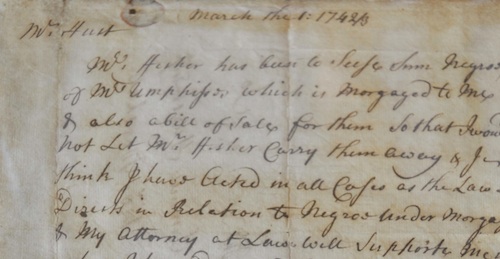 March the 1: 1742/3
Mr. Hust
Mr. Fisher has been to Seese Sum Negroe
of Mrs Umphiss which is Morgaged to Me
& also a bill of Sale for them So that I wou
not Let Mr. Fisher Carry them away & I
think I have Acted in all Cases as the Law
Directs in Relation to Negroes under Morga
& My Attorney at Law will Supporte Me